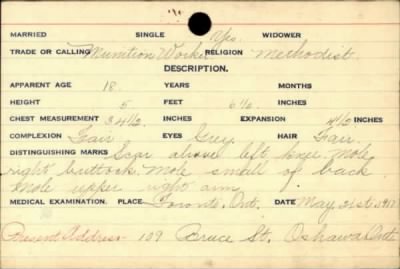 MARRIED SINGLE Yes. WIDOWER
TRADE OR CALLING Munition Worker RELIGION Methodist.
DESCRIPTION.
APPARENT AGE 18 YEARS MONTHS
HEIGHT 5 FEET 6½ INCHES
CHEST MEASUREMENT 34½ INCHES EXPANSION 4½ INCHES
COMPLEXION Fair EYES Grey HAIR Fair.
DISTINGUISHING MARKS Scar above left knee. Mole
right buttock. Mole small of back
Mole upper right arm
MEDICAL EXAMINATION. PLACE Toronto, Ont. DATE May 21st
Present Address - 109 Bruce St. Oshawa Ont